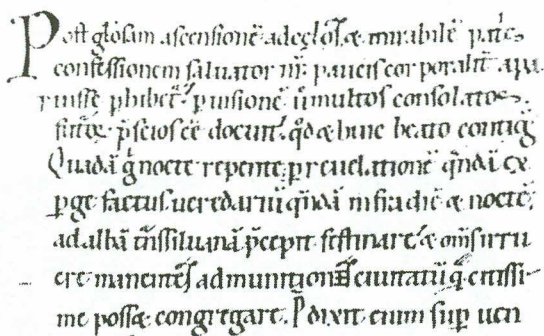 Post gl̃osam ascensionē ad cęlos & mirabilē pat̃s
confessionem saluator nr̃ paucis corporalit̃ apa
ruisse phibet᷑, p uisionē ũ multos consolatos
futoꝝ p̃scios eē docunt᷑, qd̃ & huic beato contig̃
Quadā g̃ nocte repente p reuelationē qndā ex
pge factus ueredariū qndā infra diē & noctē
ad albā t̃nssiluanā p̃cepit festinare, & om̃s in ru
re manentes ad munitiones ciuitatū q̃ citissi-
me poss& congregare. P̃dixit enim sup uen